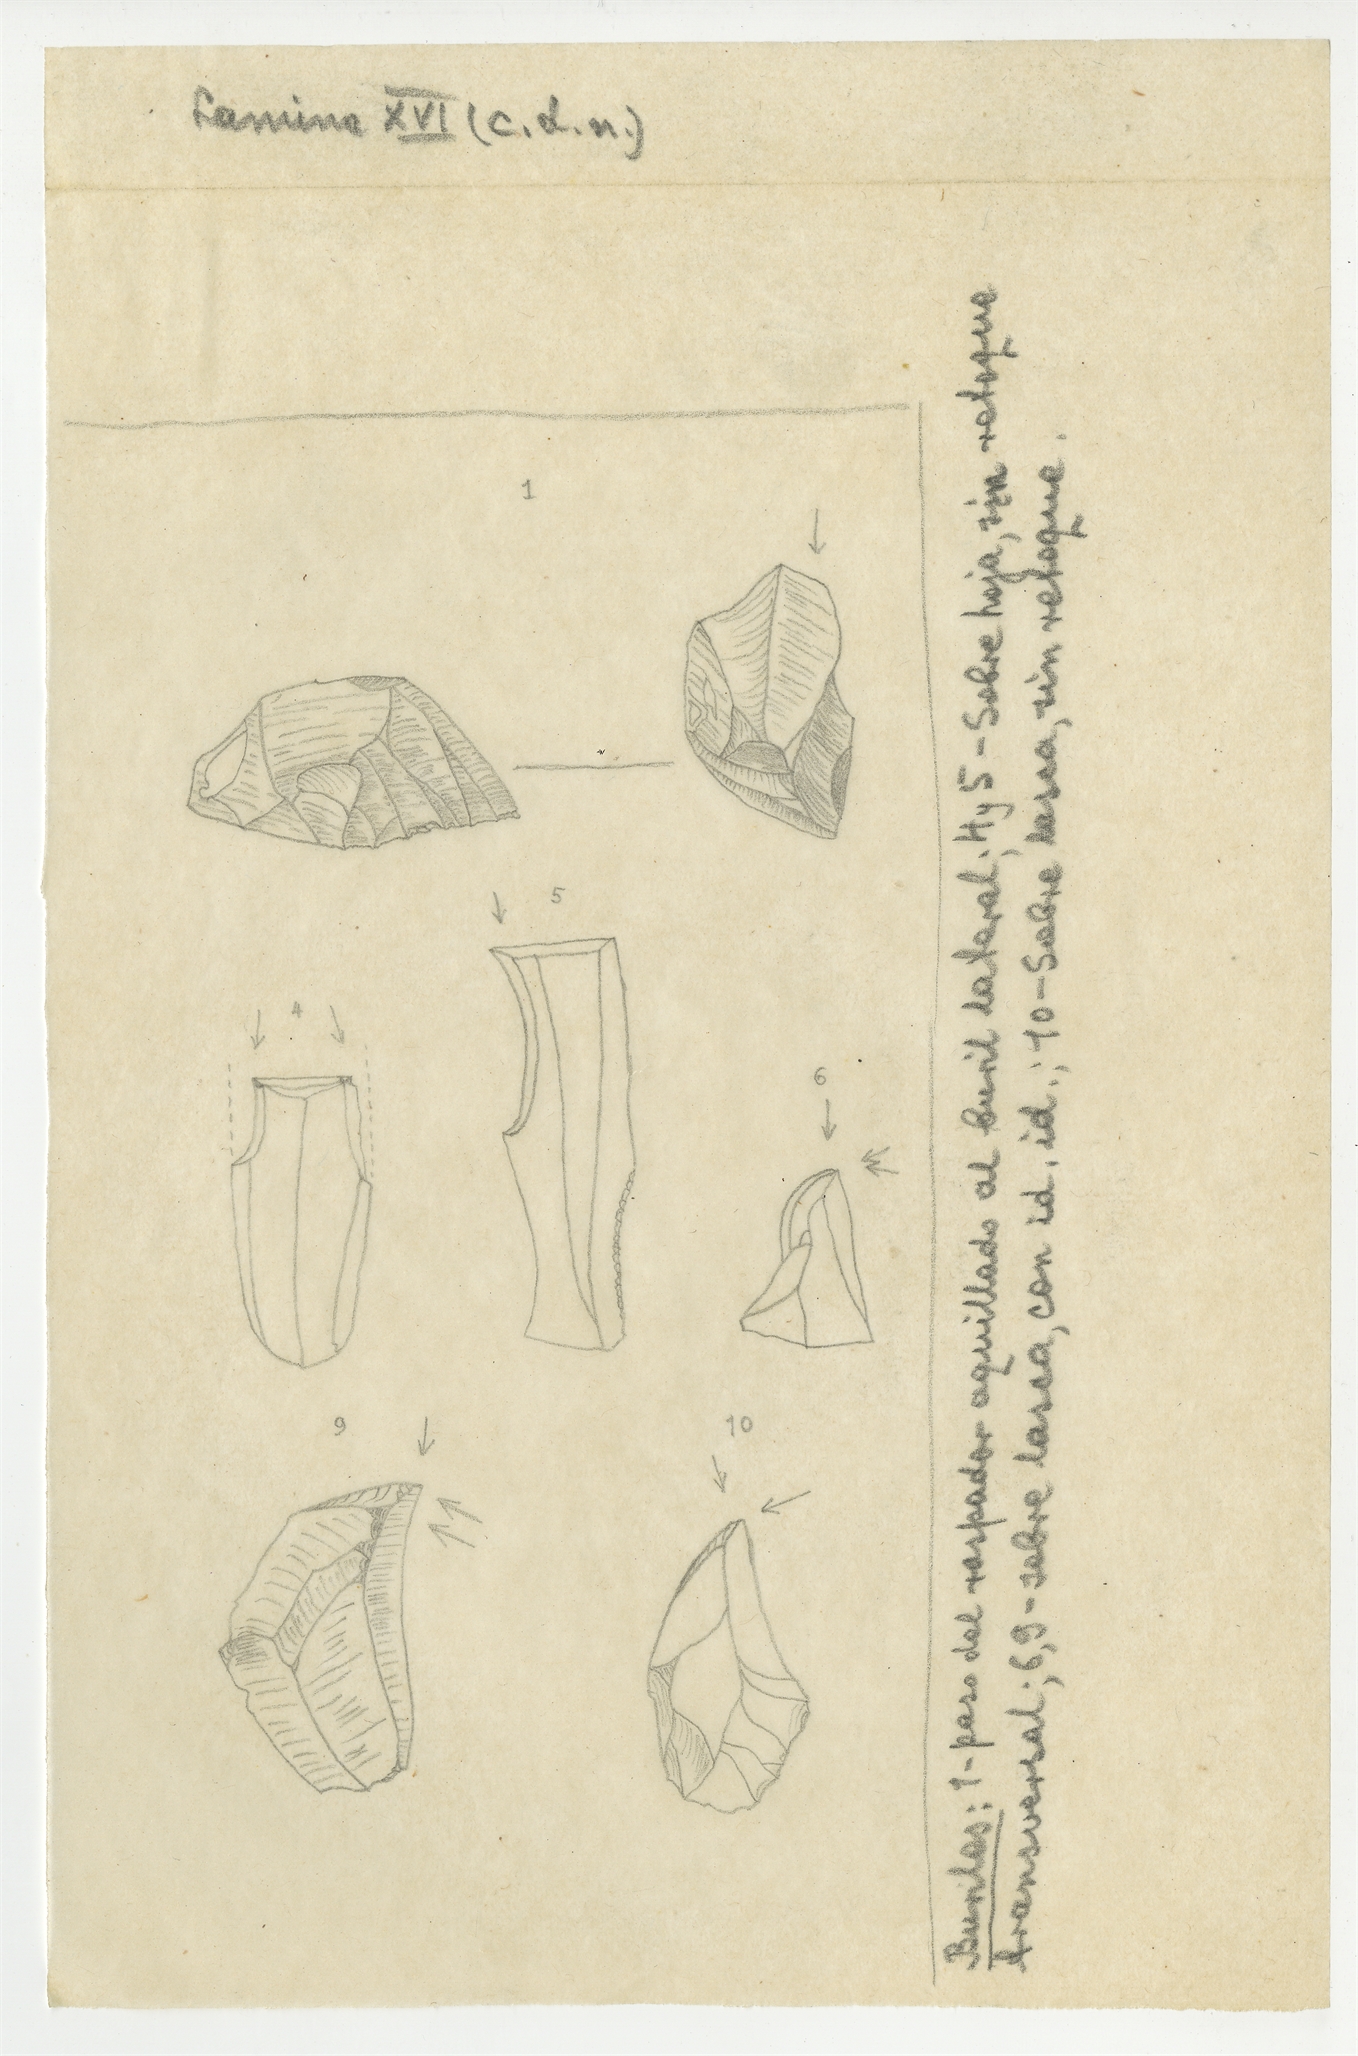 Lamina XVI (c.d.n.)
1
5
4
6
9
10
Buriles: 1-paso del raspador aquillado al buril lateral; 4 y 5-Sobre hoja, sin retoque
transversal; 6,9-sobre lasca, con id. id.; 10-Sobre lasca, sin retoque.